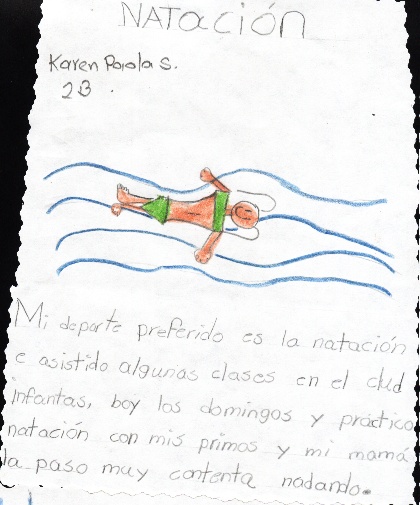 NATACIÓN
Karen Paola S.
2B.
Mi deporte preferido es la natación
e asistido algunas clases en el clud
infantas, boy los domingos y práctico
natación con mis primos y mi mamá
la paso muy contenta nadando.